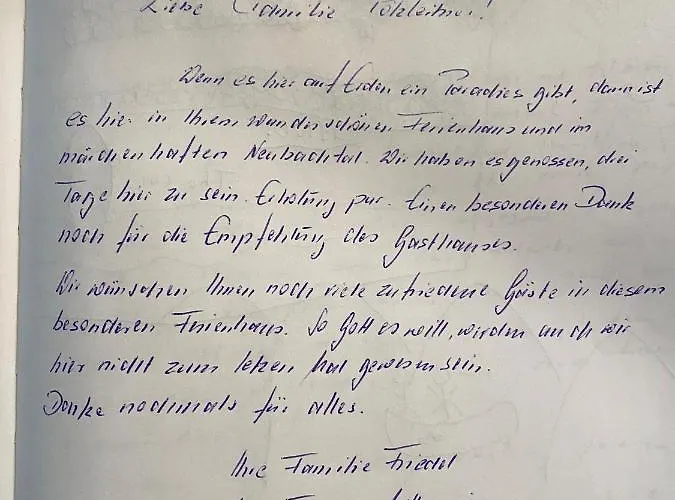 Liebe Familie
Wenn es hier auf Erden ein Paradies gibt, dann ist
es hier in Ihrem wunderschönen Ferienhaus und im
märchenhaften Neubachtal. Wir haben es genossen, drei
Tage hier zu sein. Erholung pur. Einen besonderen Dank
noch für die Empfehlung des Gasthauses.
Wir wünschen Ihnen noch viele zufriedene Gäste in diesem
besonderen Ferienhaus. So Gott es will, werden auch wir
hier nicht zum letzen Mal gewesen sein.
Danke nochmals für alles.
Ihre Familie Friedel